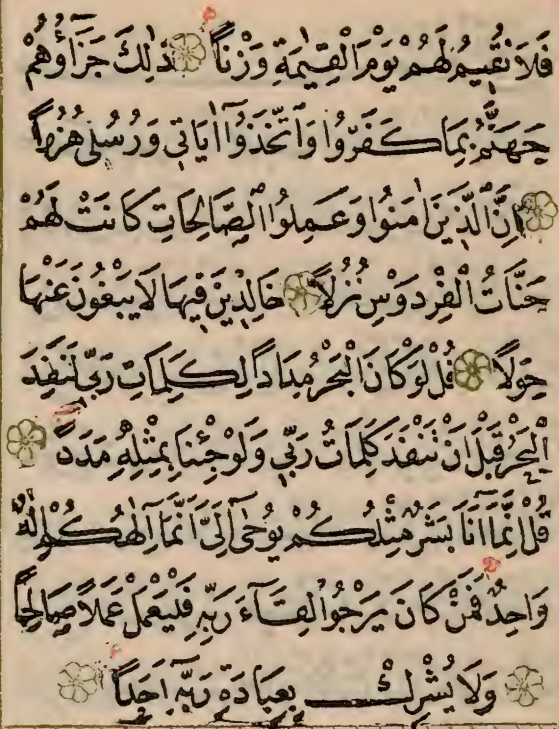 فَلَا نُقِيمُ لَهُمْ يَوْمَ الْقِيٰمَةِ وَزْنًا ذٰلِكَ جَزَآؤُهُمْ
جَهَنَّمُ بِمَا كَفَرُوا وَاتَّخَذُوٓا اٰيَاتِي وَرُسُلِي هُزُوًا
اِنَّ الَّذِينَ اٰمَنُوا وَعَمِلُوا الصَّالِحَاتِ كَانَتْ لَهُمْ
جَنَّاتُ الْفِرْدَوْسِ نُزُلًا خَالِدِينَ فِيهَا لَا يَبْغُونَ عَنْهَا
حِوَلًا قُلْ لَوْ كَانَ الْبَحْرُ مِدَادًا لِكَلِمَاتِ رَبِّي لَنَفِدَ
الْبَحْرُ قَبْلَ اَنْ تَنْفَدَ كَلِمَاتُ رَبِّي وَلَوْ جِئْنَا بِمِثْلِهِ مَدَدًا
قُلْ اِنَّمَآ اَنَا بَشَرٌ مِثْلُكُمْ يُوحٰٓى اِلَيَّ اَنَّمَآ اِلٰهُكُمْ اِلٰهٌ
وَاحِدٌ فَمَنْ كَانَ يَرْجُوا لِقَآءَ رَبِّهِ فَلْيَعْمَلْ عَمَلًا صَالِحًا
وَلَا يُشْرِكْ بِعِبَادَةِ رَبِّهِٓ اَحَدًا